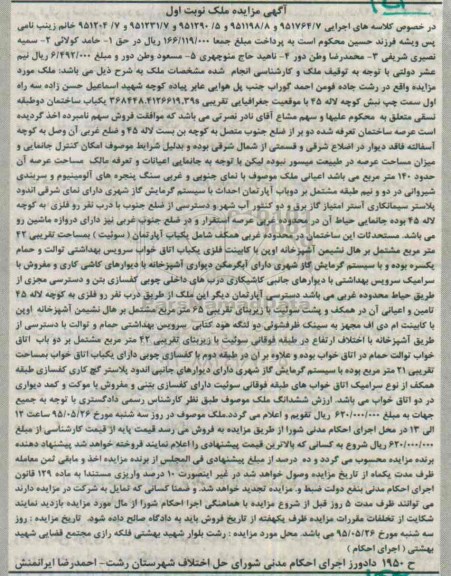 آگهی مزایده ملک نوبت اول
در خصوص کلاسه های اجرایی ۹۵۱۷۶۴/۷ ۹۵۱۱۹۸/۸ و ۵/ ۹۵۱۲۹۰ ۹۵۱۲۳۱/۷ و ۷/ ۹۵۱۲۰۴ خانم زینب نامی
پس ویشه فرزند حسین محکوم است به پرداخت مبلغ جمعا ۱۶۶/۱۱۹/۰۰۰ ریال در حق ۱- حامد کولانی ۲- سمیه
نصیری شریفی ۳- محمدرضا وطن دور ۴- ناهید حاج منوچهری ۵- مسعود وطن دور و مبلغ ۶/۴۹۲/۰۰۰ ریال نیم
عشر دولتی با توجه به توقیف ملک و کارشناسی انجام شده مشخصات ملک به شرح ذیل می باشد: ملک مورد
مزایده واقع در رشت جاده فومن احمد گوراب جنب پل هوایی عابر پیاده کوچه شهید اسماعیل حسن زاده سه راه
اول سمت چپ نبش کوچه لاله ۴۵ با موقعیت جغرافیایی تقریبی ۳۶۸۴۴۸،۴۱۲۶۶۱۹،۳۹s یکباب ساختمان دوطبقه
نسقی متعلق به محکوم علیها و سهم مشاع آقای نادر نصرتی می باشد که موافقت فروش سهم نامبرده اخذ گردیده
است عرصه ساختمان تعرفه شده دو بر از ضلع جنوب متصل به کوچه بن بست لاله ۴۵ و ضلع غربی آن وصل به کوچه
آسفالته فاقد دیوار در اضلاع شرقی و قسمتی از شمال شرقی بوده و بدلیل شرایط موصوف امکان کنترل جانمایی و
میزان مساحت عرصه در طبیعت میسور نبوده لیکن با توجه به جانمایی اعیانات و تعرفه مالک مساحت عرصه آن
حدود ۱۴۰ متر مربع می باشد اعیانی ملک موصوف با نمای جنوبی و غربی سنگ پنجره های آلومینیوم و سربندی
شیروانی در دو و نیم طبقه مشتمل بر دوباب آپارتمان احداث با سیستم گرمایش گاز شهری دارای نمای شرقی اندود
پلاستر سیمانکاری آستر امتیاز گاز برق و دو کنتور آب شهر و دسترسی از ضلع جنوب با درب نفر رو فلزی به کوچه
لاله ۴۵ بوده جانمایی حیاط آن در محدوده غربی عرصه استقرار و در ضلع جنوب غربی نیز دارای دروازه ماشین رو
می باشد. مستحدثات این ساختمان در محدوده غربی همکف شامل یکباب آپارتمان (سوئیت) بمساحت تقریبی ۴۲
متر مربع مشتمل بر هال نشیمن آشپزخانه اوپن با کابینت فلزی یکباب اتاق خواب سرویس بهداشتی توالت و حمام
یکسره بوده و با سیستم گرمایش گاز شهری دارای آبگرمکن دیواری آشپزخانه با دیوارهای کاشی کاری و مفروش با
سرامیک سرویس بهداشتی با دیوارهای جانبی کاشیکاری درب های داخلی چوبی کفسازی بتن و دسترسی مجزی از
طریق حیاط محدوده غربی می باشد دسترسی آپارتمان دیگر این ملک از طریق درب نفر رو فلزی به کوچه لاله ۴۵
تامین و اعیانی آن در همکف و پشت سوئیت با زیربنای تقریبی ۶۵ متر مربع مشتمل بر هال نشیمن آشپزخانه اوپن
با کابینت ام دی اف مجهز به سینک ظرفشوئی دو لنگه هود کتابی سرویس بهداشتی حمام و توالت با دسترسی از
طریق آشپزخانه با اختلاف ارتفاع در طبقه فوقانی سوئیت با زیربنای تقریبی ۴۲ متر مربع مشتمل بر دو باب اتاق
خواب توالت حمام در اتاق خواب بوده و علاوه بر آن در طبقه دوم با کفسازی چوبی دارای یکباب اتاق خواب بمساحت
تقریبی ۲۱ متر مربع بوده با سیستم گرمایش گاز شهری دارای دیوارهای جانبی اندود پلاستر گچ کاری کفسازی طبقه
همکف از نوع سرامیک اتاق خواب های طبقه فوقانی سوئیت دارای کفسازی بتنی و مفروش با موکت و کمد دیواری
در دو اتاق خواب می باشد. ارزش ششدانگ ملک موصوف طبق نظر کارشناس رسمی دادگستری با توجه به جمیع
جهات به مبلغ ۶۲۰/۰۰۰/۰۰۰ ریال تقویم و اعلام می گردد.ملک موصوف در روز سه شنبه مورخ ۹۵/۰۵/۲۶ ساعت ۱۲
الی ۱۳ در محل اجرای احکام مدنی شورا از طریق مزایده به فروش می رسد قیمت پایه از قیمت کارشناسی از مبلغ
۶۲۰/۰۰۰/۰۰۰ ریال شروع به کسانی که بالاترین قیمت پیشنهادی را اعلام نمایند فروخته خواهد شد پیشنهاد دهنده
برنده مزایده محسوب می گردد و ده درصد از مبلغ پیشنهادی فی المجلس از برنده مزایده اخذ و مابقی ثمن معامله
ظرف مدت یکماه از تاریخ مزایده وصول خواهد شد در غیر اینصورت ۱۰ درصد واریزی مستندا به ماده ۱۲۹ قانون
اجرای احکام مدنی بنفع دولت ضبط و مزایده تجدید خواهد شد. و ضمنا کسانی که تمایل به شرکت در مزایده دارند
می توانند ظرف مدت ۵ روز قبل از شروع مزایده با هماهنگی اجرا احکام شورا از مال مورد مزایده بازدید نمایند
شکایت از تخلفات مقررات مزایده ظرف یکهفته از تاریخ فروش باید به دادگاه صالح داده شود. تاریخ مزایده : روز
سه شنبه مورخ ۹۵/۰۵/۲۶ می باشد. محل مورد مزایده : رشت بلوار شهید بهشتی فلکه رازی مجتمع قضایی شهید
بهشتی (اجرای احکام)
ح ۱۹۵۰ دادورز اجرای احکام مدنی شورای حل اختلاف شهرستان رشت- احمدرضا ایرانمنش